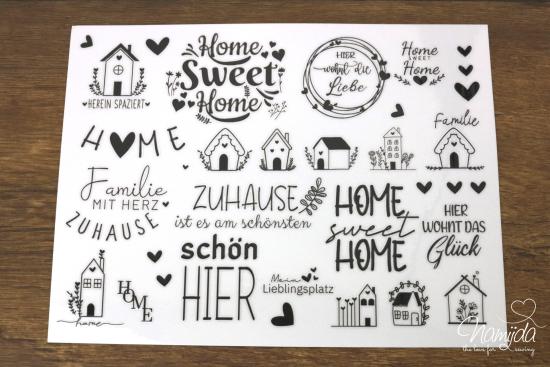 HEREIN SPAZIERT
Home
Sweet
Home
HIER
wohnt die
Liebe
Home
SWEET
Home
HOME
Familie
Familie
MIT HERZ
ZUHAUSE
ZUHAUSE
ist es am schönsten
HOME
sweet
HOME
HIER
WOHNT DAS
Glück
schön
HIER
Mein
Lieblingsplatz
home
HOME
namijda
the love for sewing